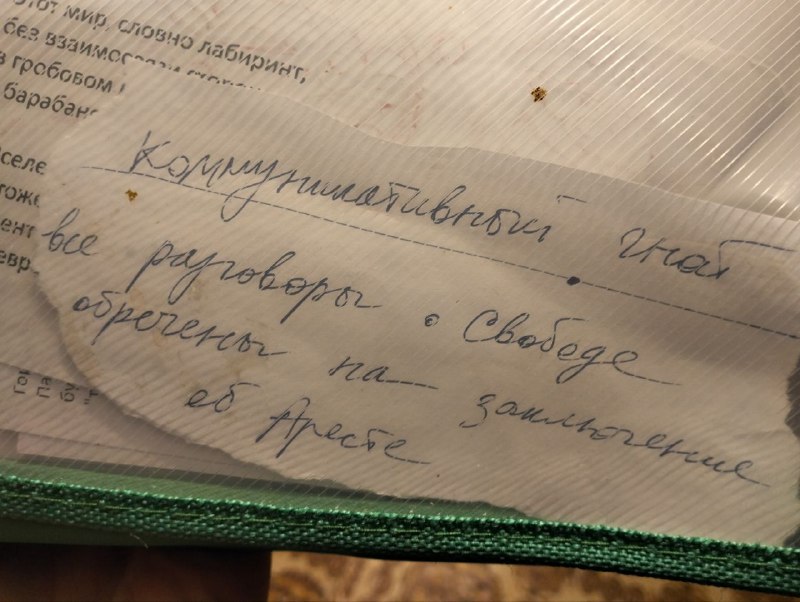 этот мир, словно лабиринт,
без взаимосвязи сторон
в гробовом
барабан
селе
тоже
ент
евр
Коммуникативный гнёт
все разговоры о Свободе
обречены на заключение
об Аресте